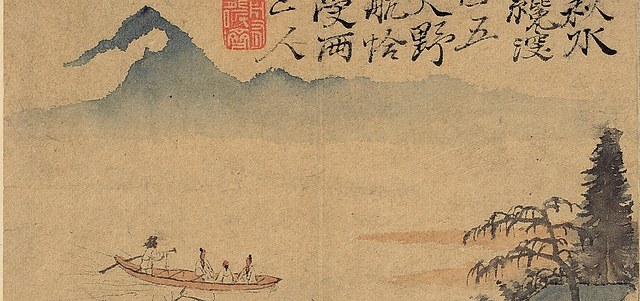 秋水
纔深
四五
尺野
航恰
受兩
三人